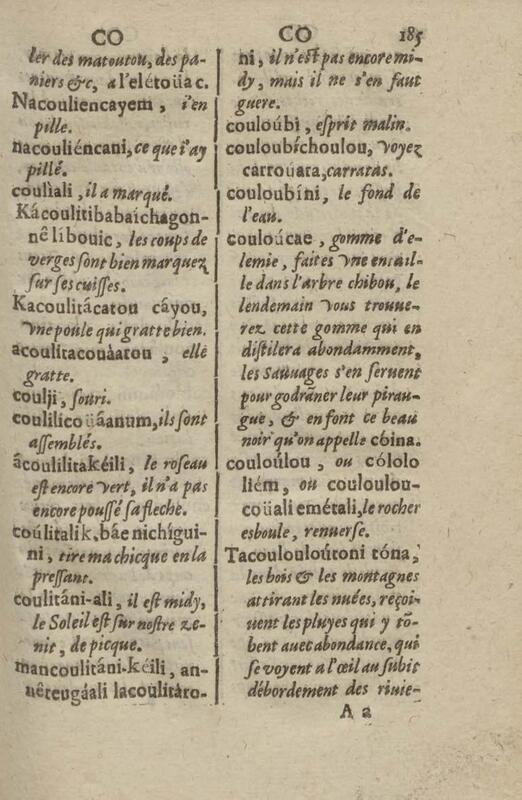 CO
CO 185
ler des matoutou, des pa-
niers &c, a l'elétoüac.
Nacouliencayem, i'en
pille.
nacouliéncani, ce que i'ay
pillé.
couliali, il a marqué.
Kácoulitibabaíchagon-
nê líbouic, les coups de
verges sont bien marquez
sur ses cuisses.
Kacoulitácatou cáyou,
vne poule qui gratte bien.
acoulitacouáatou, elle
gratte.
coulji, souri.
coulilicoüáanum, ils sont
assemblés.
ácoulilitakéili, le roseau
est encore vert, il n'a pas
encore poussé sa fleche.
coúlitalik.báe nichígui-
ni, tire ma chicque en la
pressant.
coulitáni-ali, il est midy,
le Soleil est sur nostre ze-
nit, de picque.
mancoulitáni-kéili, an-
nêteugáali lacoulitáro-
ni, il n'est pas encore mi-
dy, mais il ne s'en faut
guere.
couloúbi, esprit malin.
couloubíchoulou, voyez
carroúata, carratas.
couloubíni, le fond de
l'eau.
couloúcae, gomme d'e-
lemie, faites vne entail-
le dans l'arbre chibou, le
lendemain vous trouue-
rez cette gomme qui en
distilera abondamment,
les Sauuages s'en seruent
pour godrãner leur pirau-
gue, & en font ce beau
noir qu'on appelle cóina.
couloúlou, ou cólolo
liém, ou couloulou-
coüali emétali, le rocher
esboule, renuerse.
Tacoulouloútoni tóna,
les bois & les montagnes
attirant les nuées, reçoi-
uent les pluyes qui y tõ-
bent auec abondance, qui
se voyent a l'œil au subit
débordement des riuie-
A a